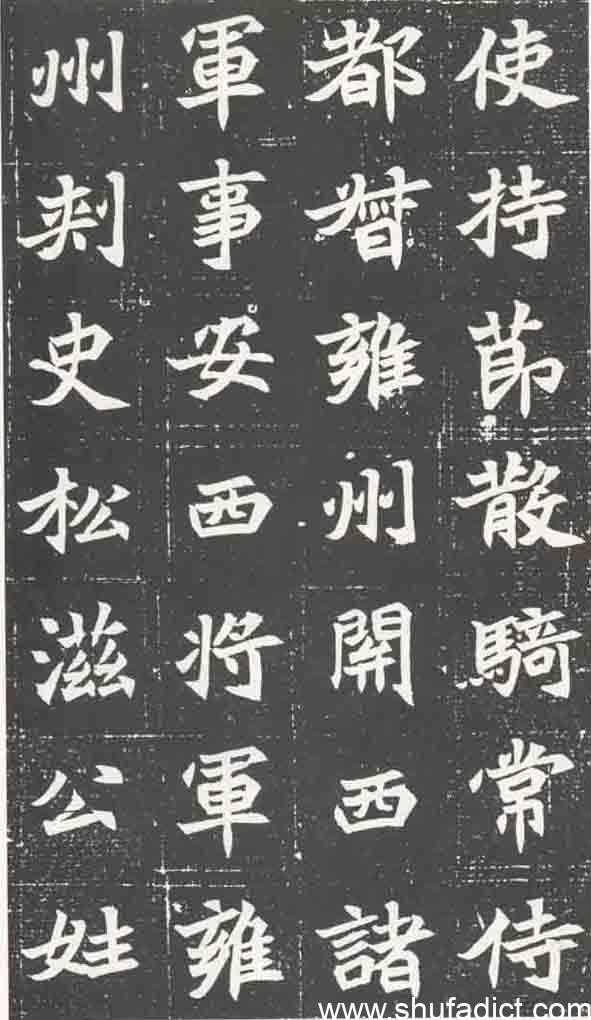 使持節散騎常侍
都督雍州關西諸
軍事安西將軍雍
州刺史松滋公姓
www.shufadict.com